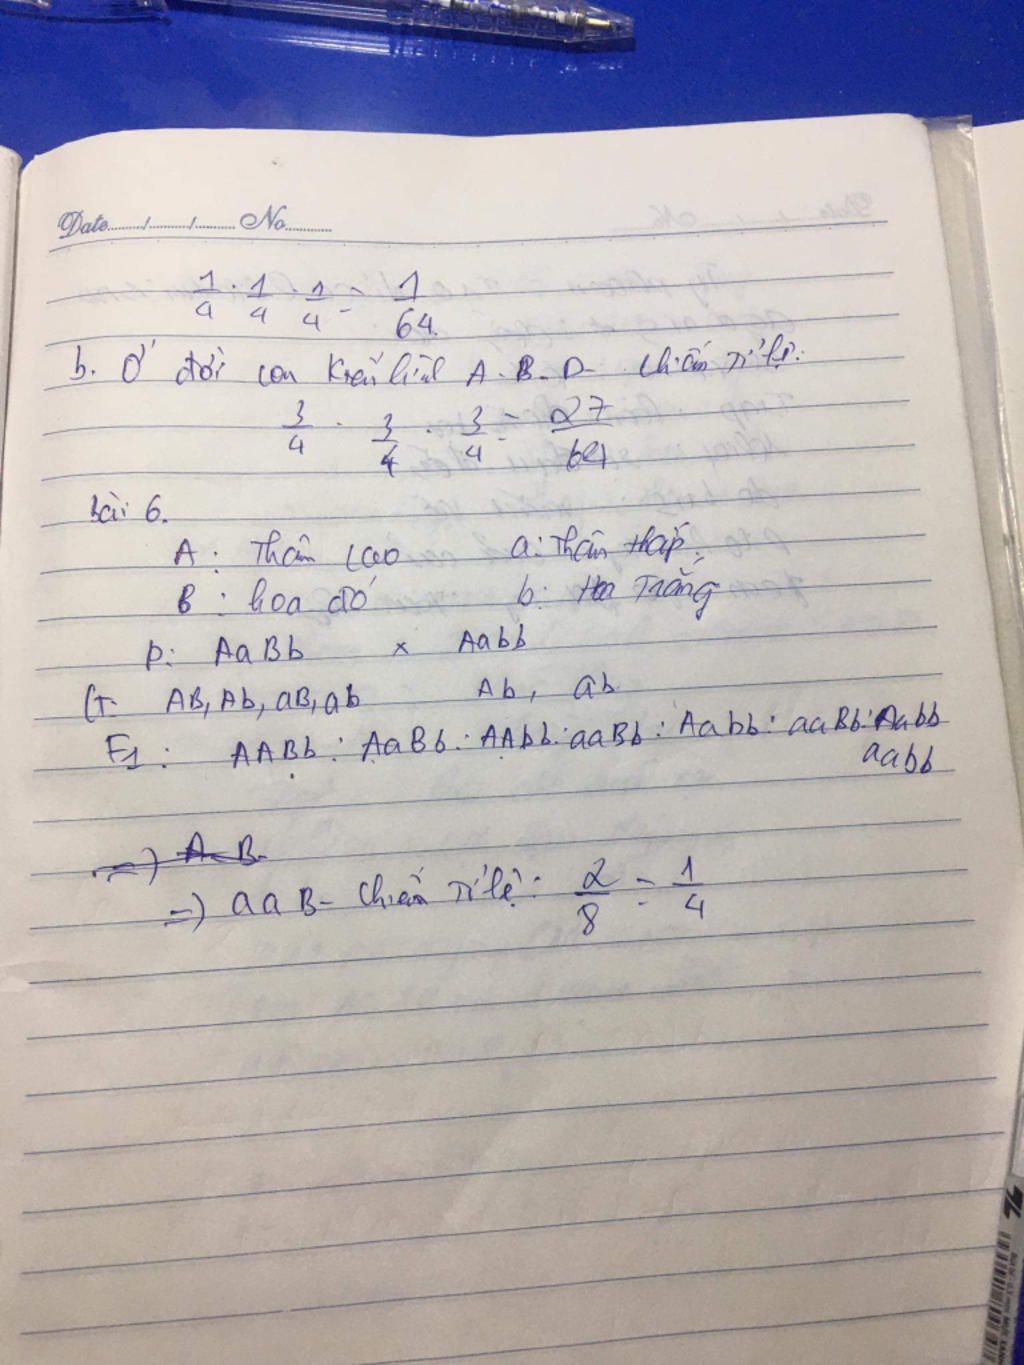 Date......../......../........ No...........
1/4 . 1/4 . 1/4 = 1/64
b. Ở đời con Kiểu hình A-B-D- chiếm tỉ lệ:
3/4 . 3/4 . 3/4 = 27/64
Bài 6.
A: Thân cao a: Thân thấp.
B: hoa đỏ b: Hoa Trắng
P: AaBb x Aabb
GT: AB, Ab, aB, ab Ab, ab
F1: AABb : AaBb : AAbb : aaBb : Aabb : aaBb : Aabb
aabb
=) A-B-
=) aaB- chiếm tỉ lệ: 2/8 = 1/4